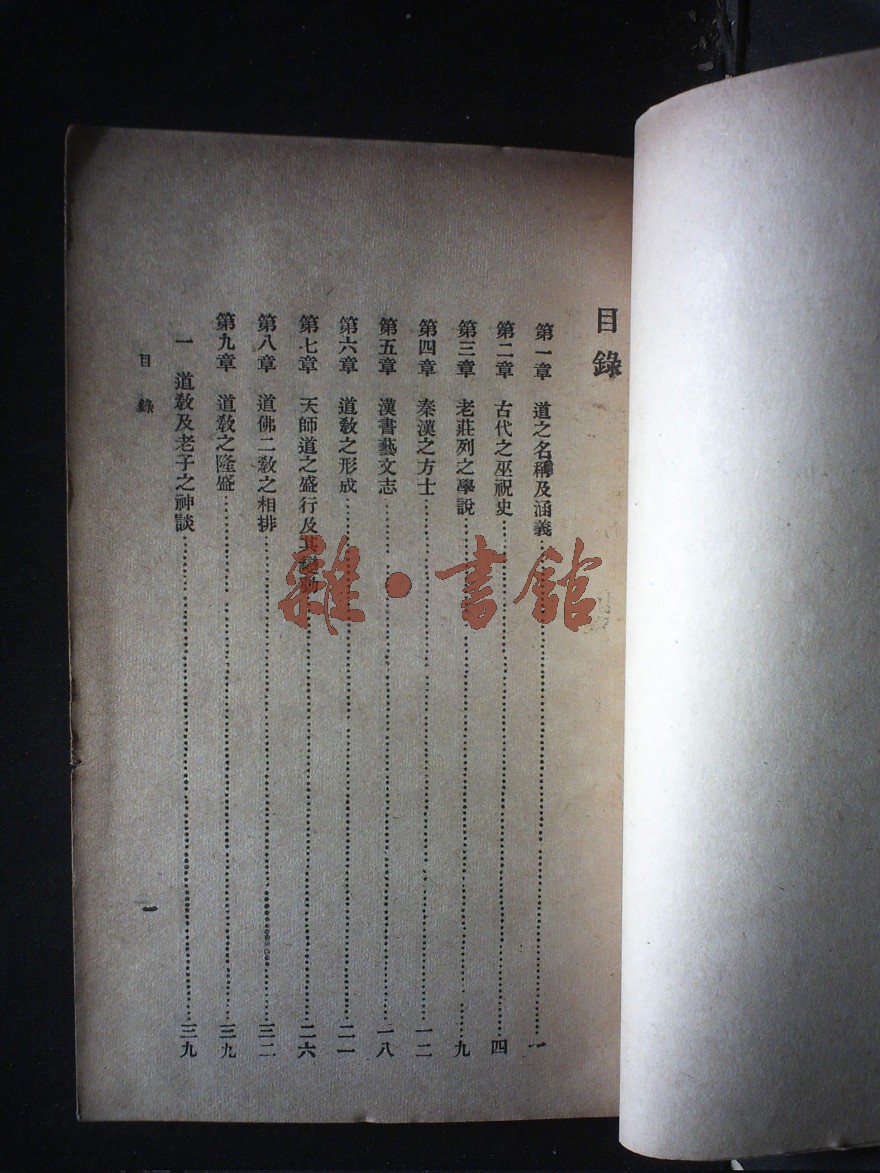 目錄
第一章 道之名稱及涵義……一
第二章 古代之巫祝史……四
第三章 老莊列之學說……九
第四章 秦漢之方士……一二
第五章 漢書藝文志……一八
第六章 道教之形成……二一
第七章 天師道之盛行及其……二六
第八章 道佛二教之相排……三二
第九章 道教之隆盛……三九
一 道教及老子之神談……三九
目錄
一
雜·書館